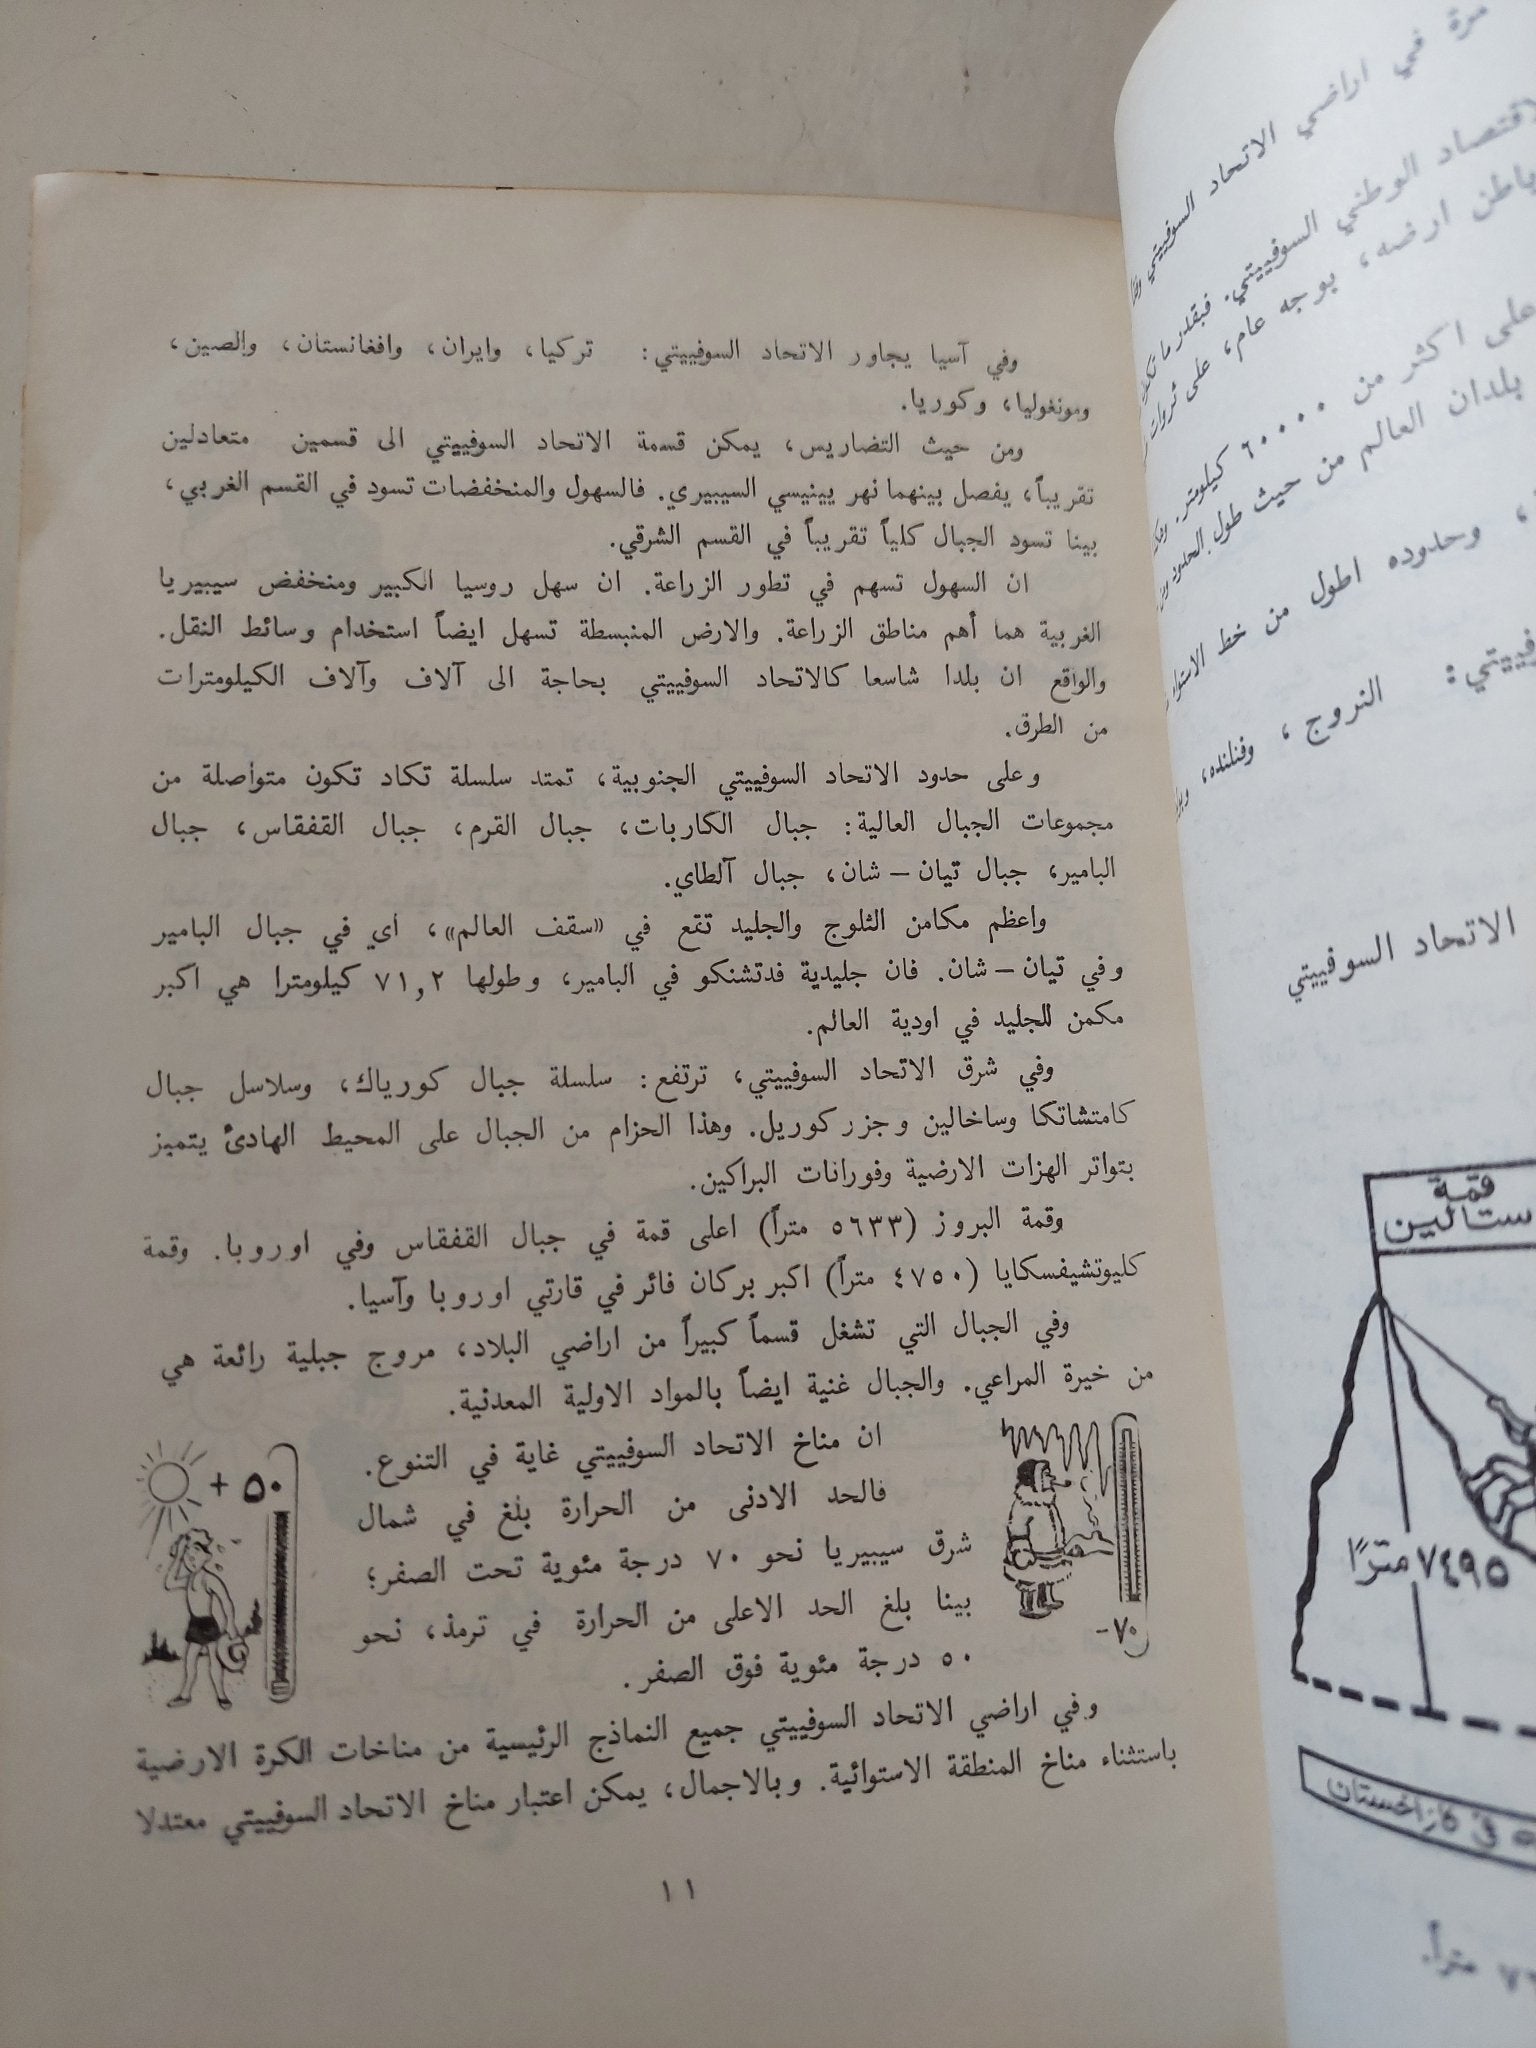 وفي آسيا يجاور الاتحاد السوفييتي: تركيا، وايران، وافغانستان، والصين،
ومونغوليا، وكوريا.
ومن حيث التضاريس، يمكن قسمة الاتحاد السوفييتي الى قسمين متعادلين
تقريباً، يفصل بينهما نهر يينيسي السيبيري. فالسهول والمنخفضات تسود في القسم الغربي،
بينا تسود الجبال كلياً تقريباً في القسم الشرقي.
ان السهول تسهم في تطور الزراعة. ان سهل روسيا الكبير ومنخفض سيبيريا
الغربية هما أهم مناطق الزراعة. والارض المنبسطة تسهل ايضاً استخدام وسائط النقل.
والواقع ان بلدا شاسعا كالاتحاد السوفييتي بحاجة الى آلاف وآلاف الكيلومترات
من الطرق.
وعلى حدود الاتحاد السوفييتي الجنوبية، تمتد سلسلة تكاد تكون متواصلة من
مجموعات الجبال العالية: جبال الكاربات، جبال القرم، جبال القفقاس، جبال
البامير، جبال تيان – شان، جبال آلطاي.
واعظم مكامن الثلوج والجليد تقع في «سقف العالم»، اي في جبال البامير
وفي تيان – شان. فان جليدية فدتشنكو في البامير، وطولها ٧١,٢ كيلومترا هي اكبر
مكمن للجليد في اودية العالم.
وفي شرق الاتحاد السوفييتي، ترتفع: سلسلة جبال كورياك، وسلاسل جبال
كامتشاتكا وساخالين وجزر كوريل. وهذا الحزام من الجبال على المحيط الهادئ يتميز
بتواتر الهزات الارضية وفورانات البراكين.
وقمة البروز (٥٦٣٣ متراً) اعلى قمة في جبال القفقاس وفي اوروبا. وقمة
كليوتشيفسكايا (٤٧٥٠ متراً) اكبر بركان فائر في قارتي اوروبا وآسيا.
وفي الجبال التي تشغل قسماً كبيراً من اراضي البلاد، مروج جبلية رائعة هي
من خيرة المراعي. والجبال غنية ايضاً بالمواد الاولية المعدنية.
ان مناخ الاتحاد السوفييتي غاية في التنوع.
فالحد الادنى من الحرارة بلغ في شمال
شرق سيبيريا نحو ٧٠ درجة مئوية تحت الصفر؛
بينا بلغ الحد الاعلى من الحرارة في ترمذ، نحو
٥٠ درجة مئوية فوق الصفر.
٧٠-
٥٠ +
وفي اراضي الاتحاد السوفييتي جميع النماذج الرئيسية من مناخات الكرة الارضية
باستثناء مناخ المنطقة الاستوائية. وبالاجمال، يمكن اعتبار مناخ الاتحاد السوفييتي معتدلا
١١
مرة في اراضي الاتحاد السوفييتي
الوطني السوفييتي. فبقدر ما
باطن ارضه، بوجه عام، على ثروات
على اكثر من ٦٠٠٠٠ كيلومتر.
بلدان العالم من حيث طول الحدود
، وحدوده اطول من خط الاستواء
النروج، وفنلنده،
الاتحاد السوفييتي
قمة
ستالين
٧٤٩٥ مترًا
في كازاخستان
متراً.